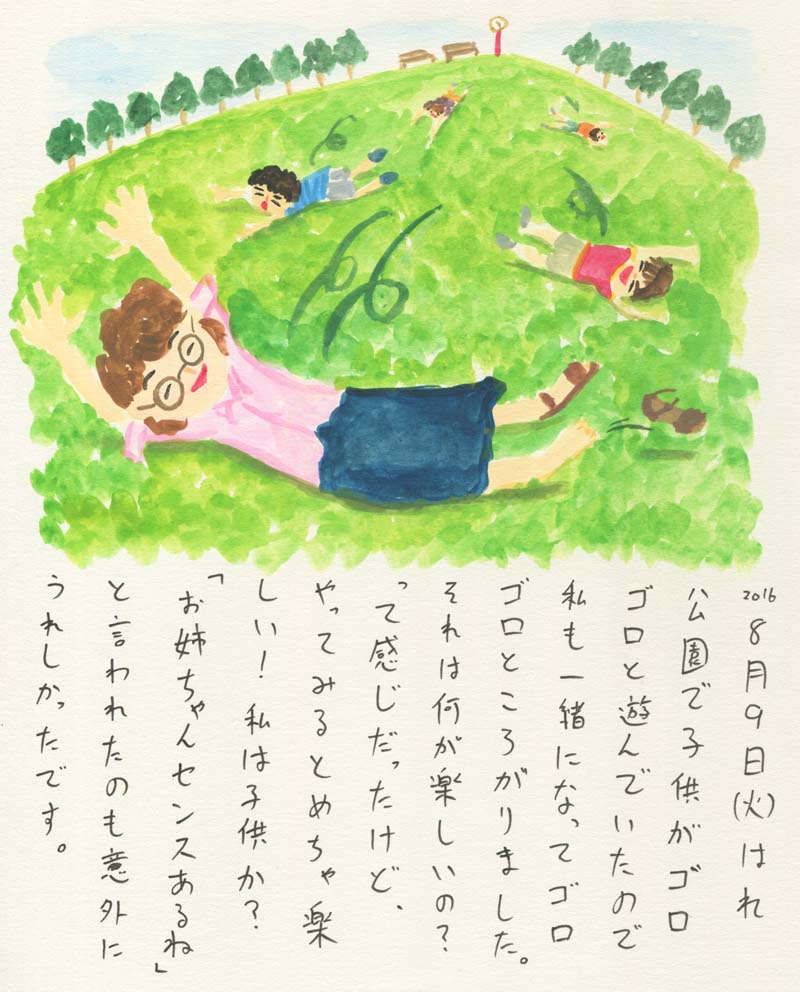 2016 8月9日(火)はれ
公園で子供がゴロ
ゴロと遊んでいたので
私も一緒になってゴロ
ゴロところがりました。
それは何が楽しいの?
って感じだったけど、
やってみるとめちゃ楽
しい!私は子供か?
「お姉ちゃんセンスあるね」
と言われたのも意外に
うれしかったです。